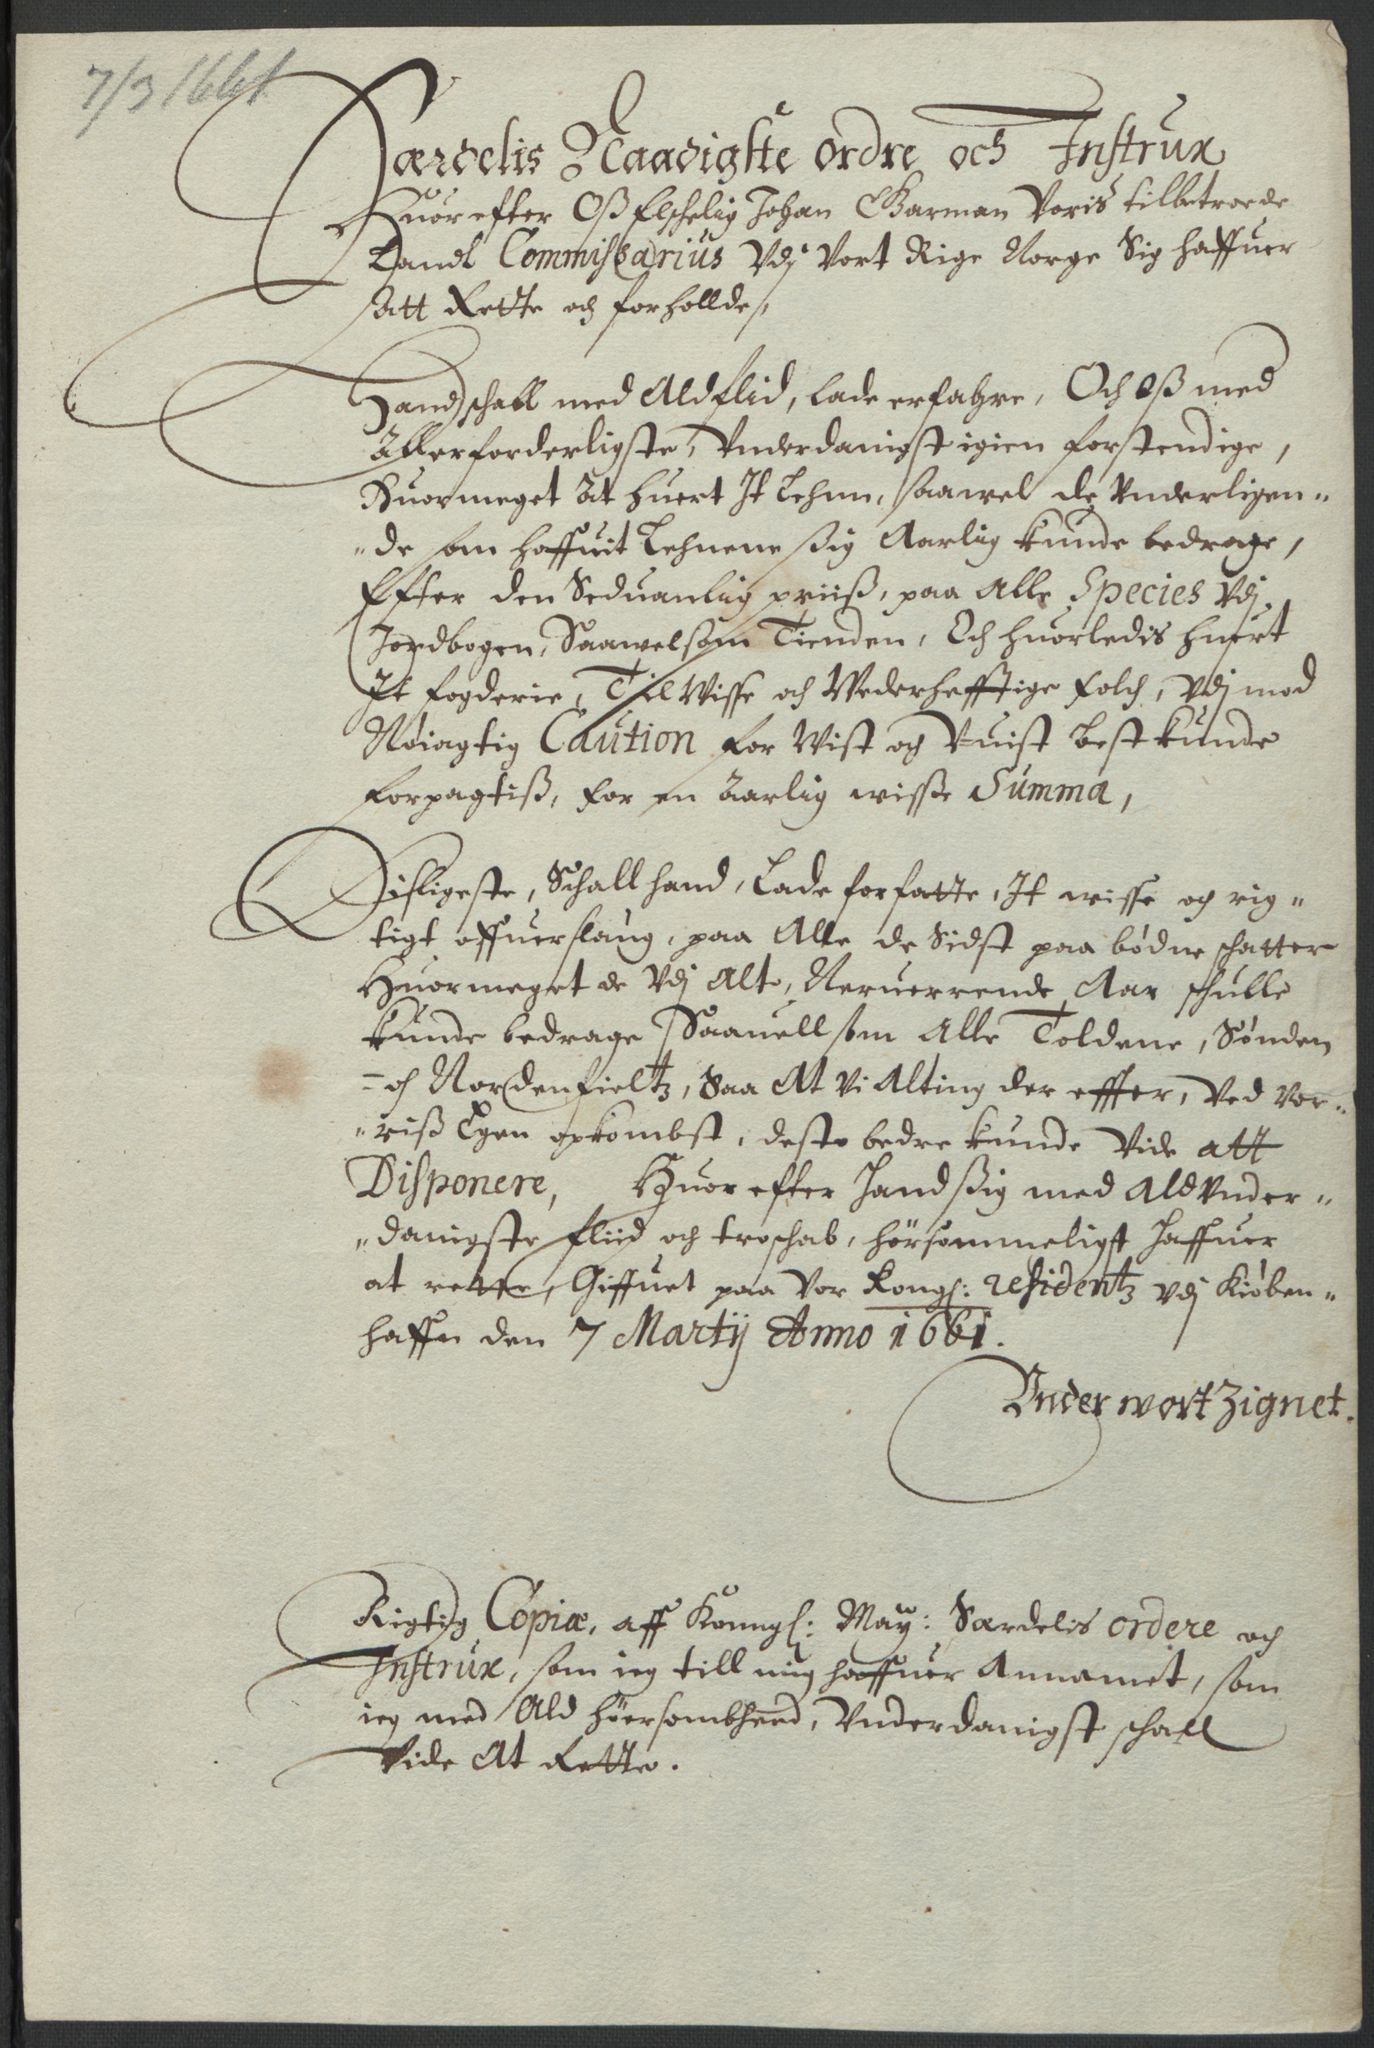 7/3 1661
Særdelis Naadigste ordre och Instrux
Huor efter Oss Elschelig Johan Garman Voris tilbetroede
Land Commissarius Vdj Vort Rige Norge Sig haffuer
Att Rette och forhollde,
Hand schall med Ald flid, lade erfahre, Och Oß med
Allerforderligste, Vnderdanigst igien forstendige,
Huormeget At huert It Lehnn, saawel de Vnderligen„
„de som haffuit Lehnene ßig Aarlig kunde bedrage,
Efter den Seduanlig priiß, paa Alle Species Vdj
Jordbogen, Saawelsom Tienden, Och huorledis huert
It fogderie, Til Wisse och Wederhefftige folch, Vdj mod
Nöiagtig Caution for Wist och Vuist best kunde
forpagtiß, for en Aarlig wisse Summa,
Disligeste, Schall hand, Lade forfatte, It wisse och rig„
tigt offuerslaug, paa Alle de Sidst paa bödne schatter
Huormeget de Vdj Alt, Neruerrende Aar schulle
kunde bedrage Saauell som Alle Toldene, Sönden
= och Nordenfieltz, Saa At Vi Alting der effter, Ved Vor„
„riß Egen opkombst, deste bedre kunde Vide att
Disponere, Huor efter Hand ßig med Ald Vnder„
„danigste fliid och troschab, hörsommeligst haffuer
at rette, Giffuet paa Vor Kongl: residentz Vdj Kiöben„
haffn den 7 Martij Anno 1661.
Vnder wort Zignet.
Rigtig Copiæ, aff Konngl: May: Særdelis ordere och
Instrux, som ieg till mig haffuer Annamet, som
ieg med Ald höersombheed, Vnderdanigst schall
Vide At Rette.